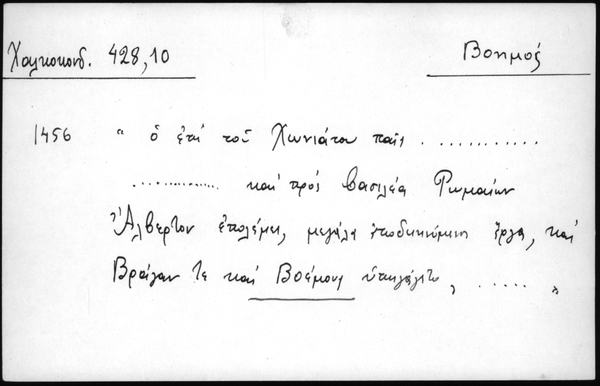 Χαλκοκονδ. 428,10
Βοημός
1456 " ὁ ἐπὶ τοῦ Χωνιάτου παῖς ............
............ καὶ πρὸς βασιλέα Ῥωμαίων
Ἀλβέρτον ἐπολέμει, μεγάλα ἀποδεικνύμενος ἔργα, καὶ
Βράγαν τε καὶ Βοέμους ὑπηγάγετο, ...... "